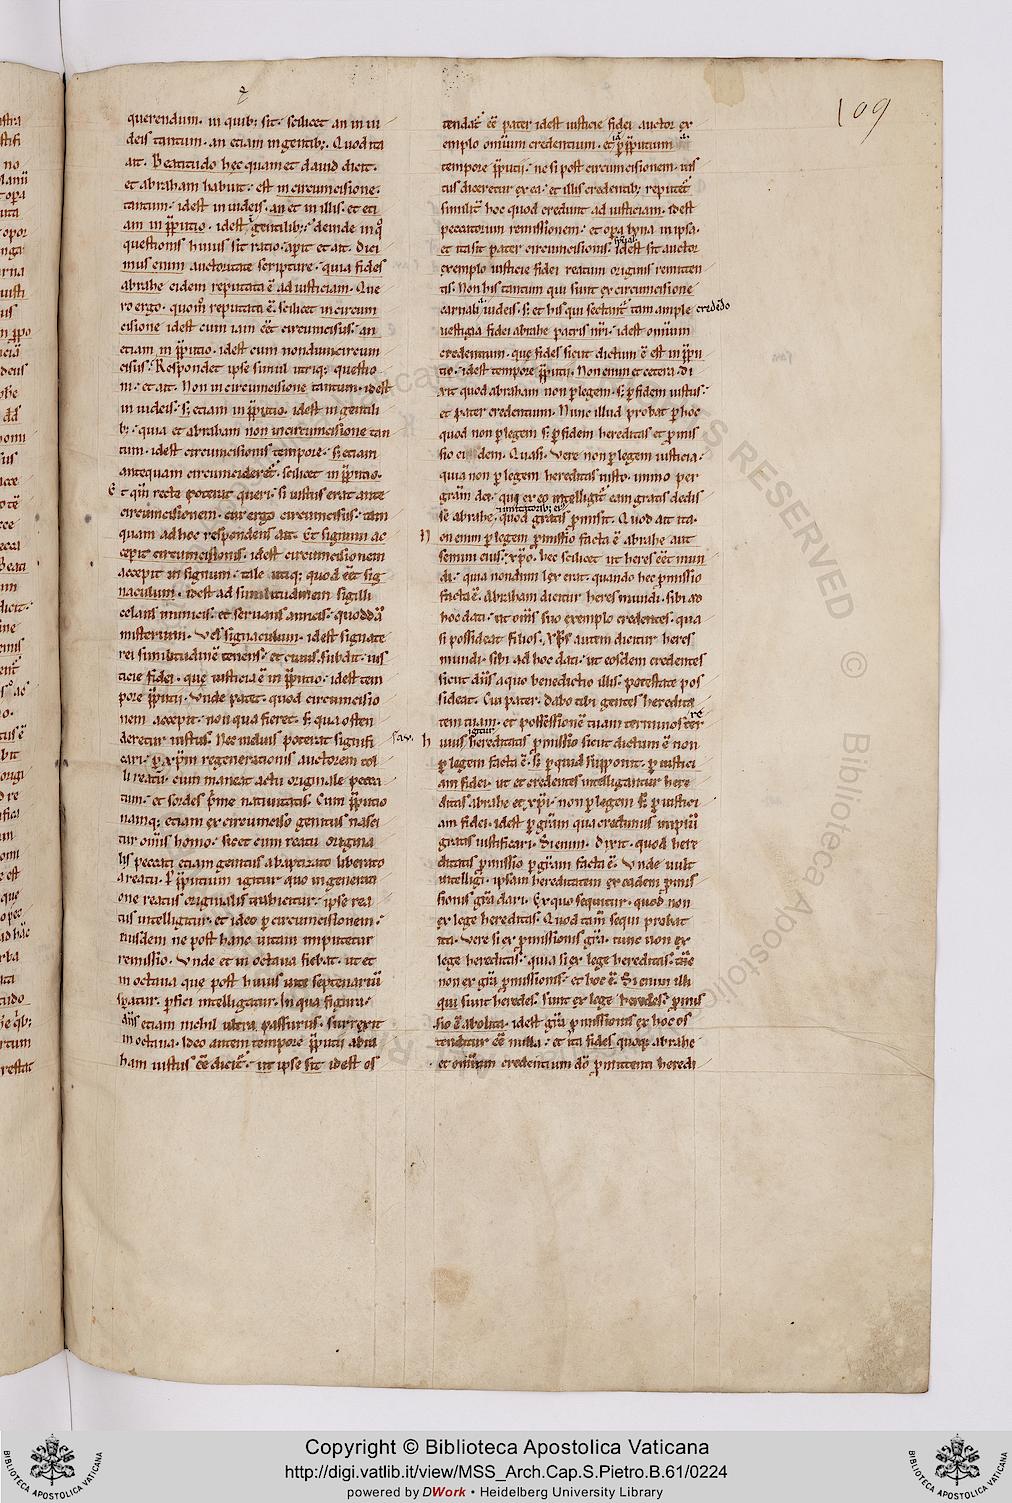 109
querendum. in quib; sit. scilicet an in iu
deis tantum. an etiam in gentib;. Quod ita
ait. Beatitudo hec quam et dauid dicit.
et abraham habuit. est in circumcisione.
tantum. idest in iudeis. an et in illis. et eti
am in p̄putio. idest gentilib;. deinde in q°
questionis huius sit ratio. aperit et ait. Dici
mus enim auctoritate scripture. quia fides
abrahe eidem reputata ē ad iusticiam. Que
ro ergo. quom̄ reputata ē. scilicet in circum
cisione idest cum iam eēt circumcisus. an
etiam in p̄putio. idest cum nondum circum
cisus. Respondet ipse simul utriq; questio
ni. et ait. Non in circumcisione tantum. idest
in iudeis. s; etiam in p̄putio. idest in gentili
b;. quia et abraham non in circumcisione tan
tum. idest circumcisionis tempore. s; etiam
antequam circumcideret᷑. scilicet in p̄putio.
Et qm̄ recte poterat queri. si iustus erat ante
circumcisionem. cur ergo circumcisus. tam
quam ad hoc respondens ait. Et signum ac
cepit circumcisionis. idest circumcisionem
accepit in signum. tale utiq; quod eēt sig
naculum. idest ad similitudinem sigilli
celans inimicis. et seruans amicis. quoddā
misterium. Vel signaculum. idest signate
rei similitudinē tenens. et cuius. subdit. ius
ticie fidei. que iusticia ē in p̄putio. idest tem
pore p̄putii. Vnde patet. quod circumcisio
nem accepit. non qua fieret. s; qua osten
deretur iustus. Nec melius poterat signifi
cari. p xp̄m regenerationis auctorem tol
li reatū. cum maneat actu originale pecca
tum. et sordes p̄me natiuitatis. Cum p̄putio
namq; etiam ex circumciso genitus nasci
tur om̄is homo. sicut cum reatu origina
lis peccati etiam genitus abaptizato liberato
a reatu. P p̄putium igitur quo in generati
one reatus originalis trahicitur. ipse rea
tus intelligitur. et ideo p circumcisionem.
eiusdem ne post hanc uitam imputetur
remissio. Vnde et in octaua fiebat. ut et
in octaua que post huius uite septenariū
spatur. p̄fici intelligatur. In qua figura.
dn̄s etiam nichil ultra passurus. surrexit
in octaua. Ideo autem tempore p̄putii abra
ham iustus eē dicit᷑. ut ipse sit idest os
tendat᷑ eē pater idest iusticie fidei auctor ex
emplo omnium credentium. et p p̄putium
tempore p̄putii. ne si post circumcisionem. ius
tus diceretur ex ea. et illis credentib; reputet᷑
similit᷑ hoc quod credunt ad iusticiam. idest
peccatorum remissionem. et opera bona in ipsa.
et ita sit pater circumcisionis. idest sit auctor
exemplo iusticie fidei reatum originis remitten
tis. Non his tantum qui sunt ex circumcisione
carnali iudeis. s; et his qui sectant᷑ tam ample credēdo
uestigia fidei abrahe patris nr̄i. idest omnium
credentium. que fides sicut dictum ē est in p̄pu
tio. idest tempore p̄putii. Non enim et cetera. Di
xit quod abraham non p legem. s; p fidem iustus.
et pater credentium. Nunc illud probat p hoc
quod non p legem s; p fidem hereditas et p̄mis
sio ei dem. Quasi. Vere non p legem iusticia.
quia non p legem hereditas iusto. immo per
gr̄am dei. qui ex eo intelligit᷑ eam gratis dedis
se abrahe. quod gratis p̄misit. Quod ait ita.
Non enim p legem p̄missio facta ē abrahe aut
semini eius. xp̄o. hec scilicet ut heres eēt mun
di. quia nondum lex erat. quando hec p̄missio
facta ē. Abraham dicitur heres mundi. sibi ad
hoc dati. ut om̄s suo exemplo credentes. qua
si possideat filios. Xp̄s autem dicitur heres
mundi. sibi ad hoc dati. ut eosdem credentes
sicut dn̄s a quo benedictio illis. potestate pos
sideat. Cui pater. dabo tibi gentes heredita
tem tuam. et possessionē tuam terminos ter re
sav. huius igitur hereditatis p̄missio sicut dictum ē non
p legem facta ē. s; p quid supponit. p iustici
am fidei. ut et credentes intelligantur here
ditas abrahe et xp̄i. non p legem s; p iustici
am fidei. idest p gr̄am qua credimus impiū
gratis iustificari. Si enim. Dixit. quod here
ditatis p̄missio p gr̄am facta ē. Vnde uult
intelligi. ipsam hereditatem ex eadem p̄mis
sionis gr̄a dari. Ex quo sequitur. quod non
ex lege hereditas. Quod tam̄ sequi probat
ita. Vere si ex p̄missionis gr̄a. tunc non ex
lege hereditas. quia si ex lege hereditas. tūc
non ex gr̄a p̄missionis. et hoc ē. Si enim illi
qui sunt heredes. sunt ex lege heredes. p̄mis
sio ē abolita. idest gr̄a p̄missionis ex hoc os
tenditur eē nulla. et ita fides quoq; abrahe
et omnium credentium dō p̄mittenti heredi
Copyright © Biblioteca Apostolica Vaticana
http://digi.vatlib.it/view/MSS_Arch.Cap.S.Pietro.B.61/0224
powered by DWork • Heidelberg University Library